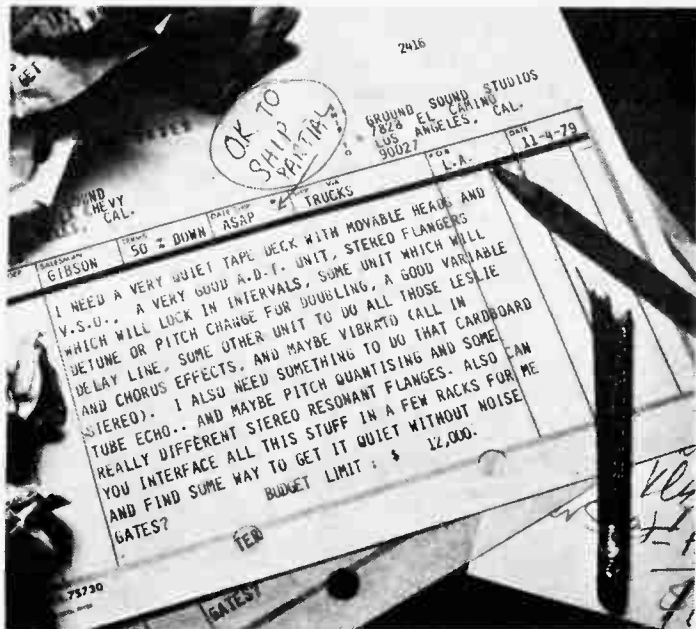 2416
GROUND SOUND STUDIOS
7828 EL CAMINO
LOS ANGELES, CAL.
90027
OK TO
SHIP
PARTIAL
CHEVY
CAL.
SALESMAN
GIBSON
TERMS
50 % DOWN
ASAP
VIA
TRUCKS
F O B
L.A.
DATE
11-4-79
I NEED A VERY QUIET TAPE DECK WITH MOVABLE HEADS AND
V.S.O., A VERY GOOD A.D.T. UNIT, STEREO FLANGERS
WHICH WILL LOCK IN INTERVALS, SOME UNIT WHICH WILL
DETUNE OR PITCH CHANGE FOR DOUBLING, A GOOD VARIABLE
DELAY LINE, SOME OTHER UNIT TO DO ALL THOSE LESLIE
AND CHORUS EFFECTS, AND MAYBE VIBRATO (ALL IN
STEREO). I ALSO NEED SOMETHING TO DO THAT CARDBOARD
TUBE ECHO.. AND MAYBE PITCH QUANTISING AND SOME
REALLY DIFFERENT STEREO RESONANT FLANGES. ALSO CAN
YOU INTERFACE ALL THIS STUFF IN A FEW RACKS FOR ME
AND FIND SOME WAY TO GET IT QUIET WITHOUT NOISE
GATES?
BUDGET LIMIT : $ 12,000.
TER
75730
GATES?